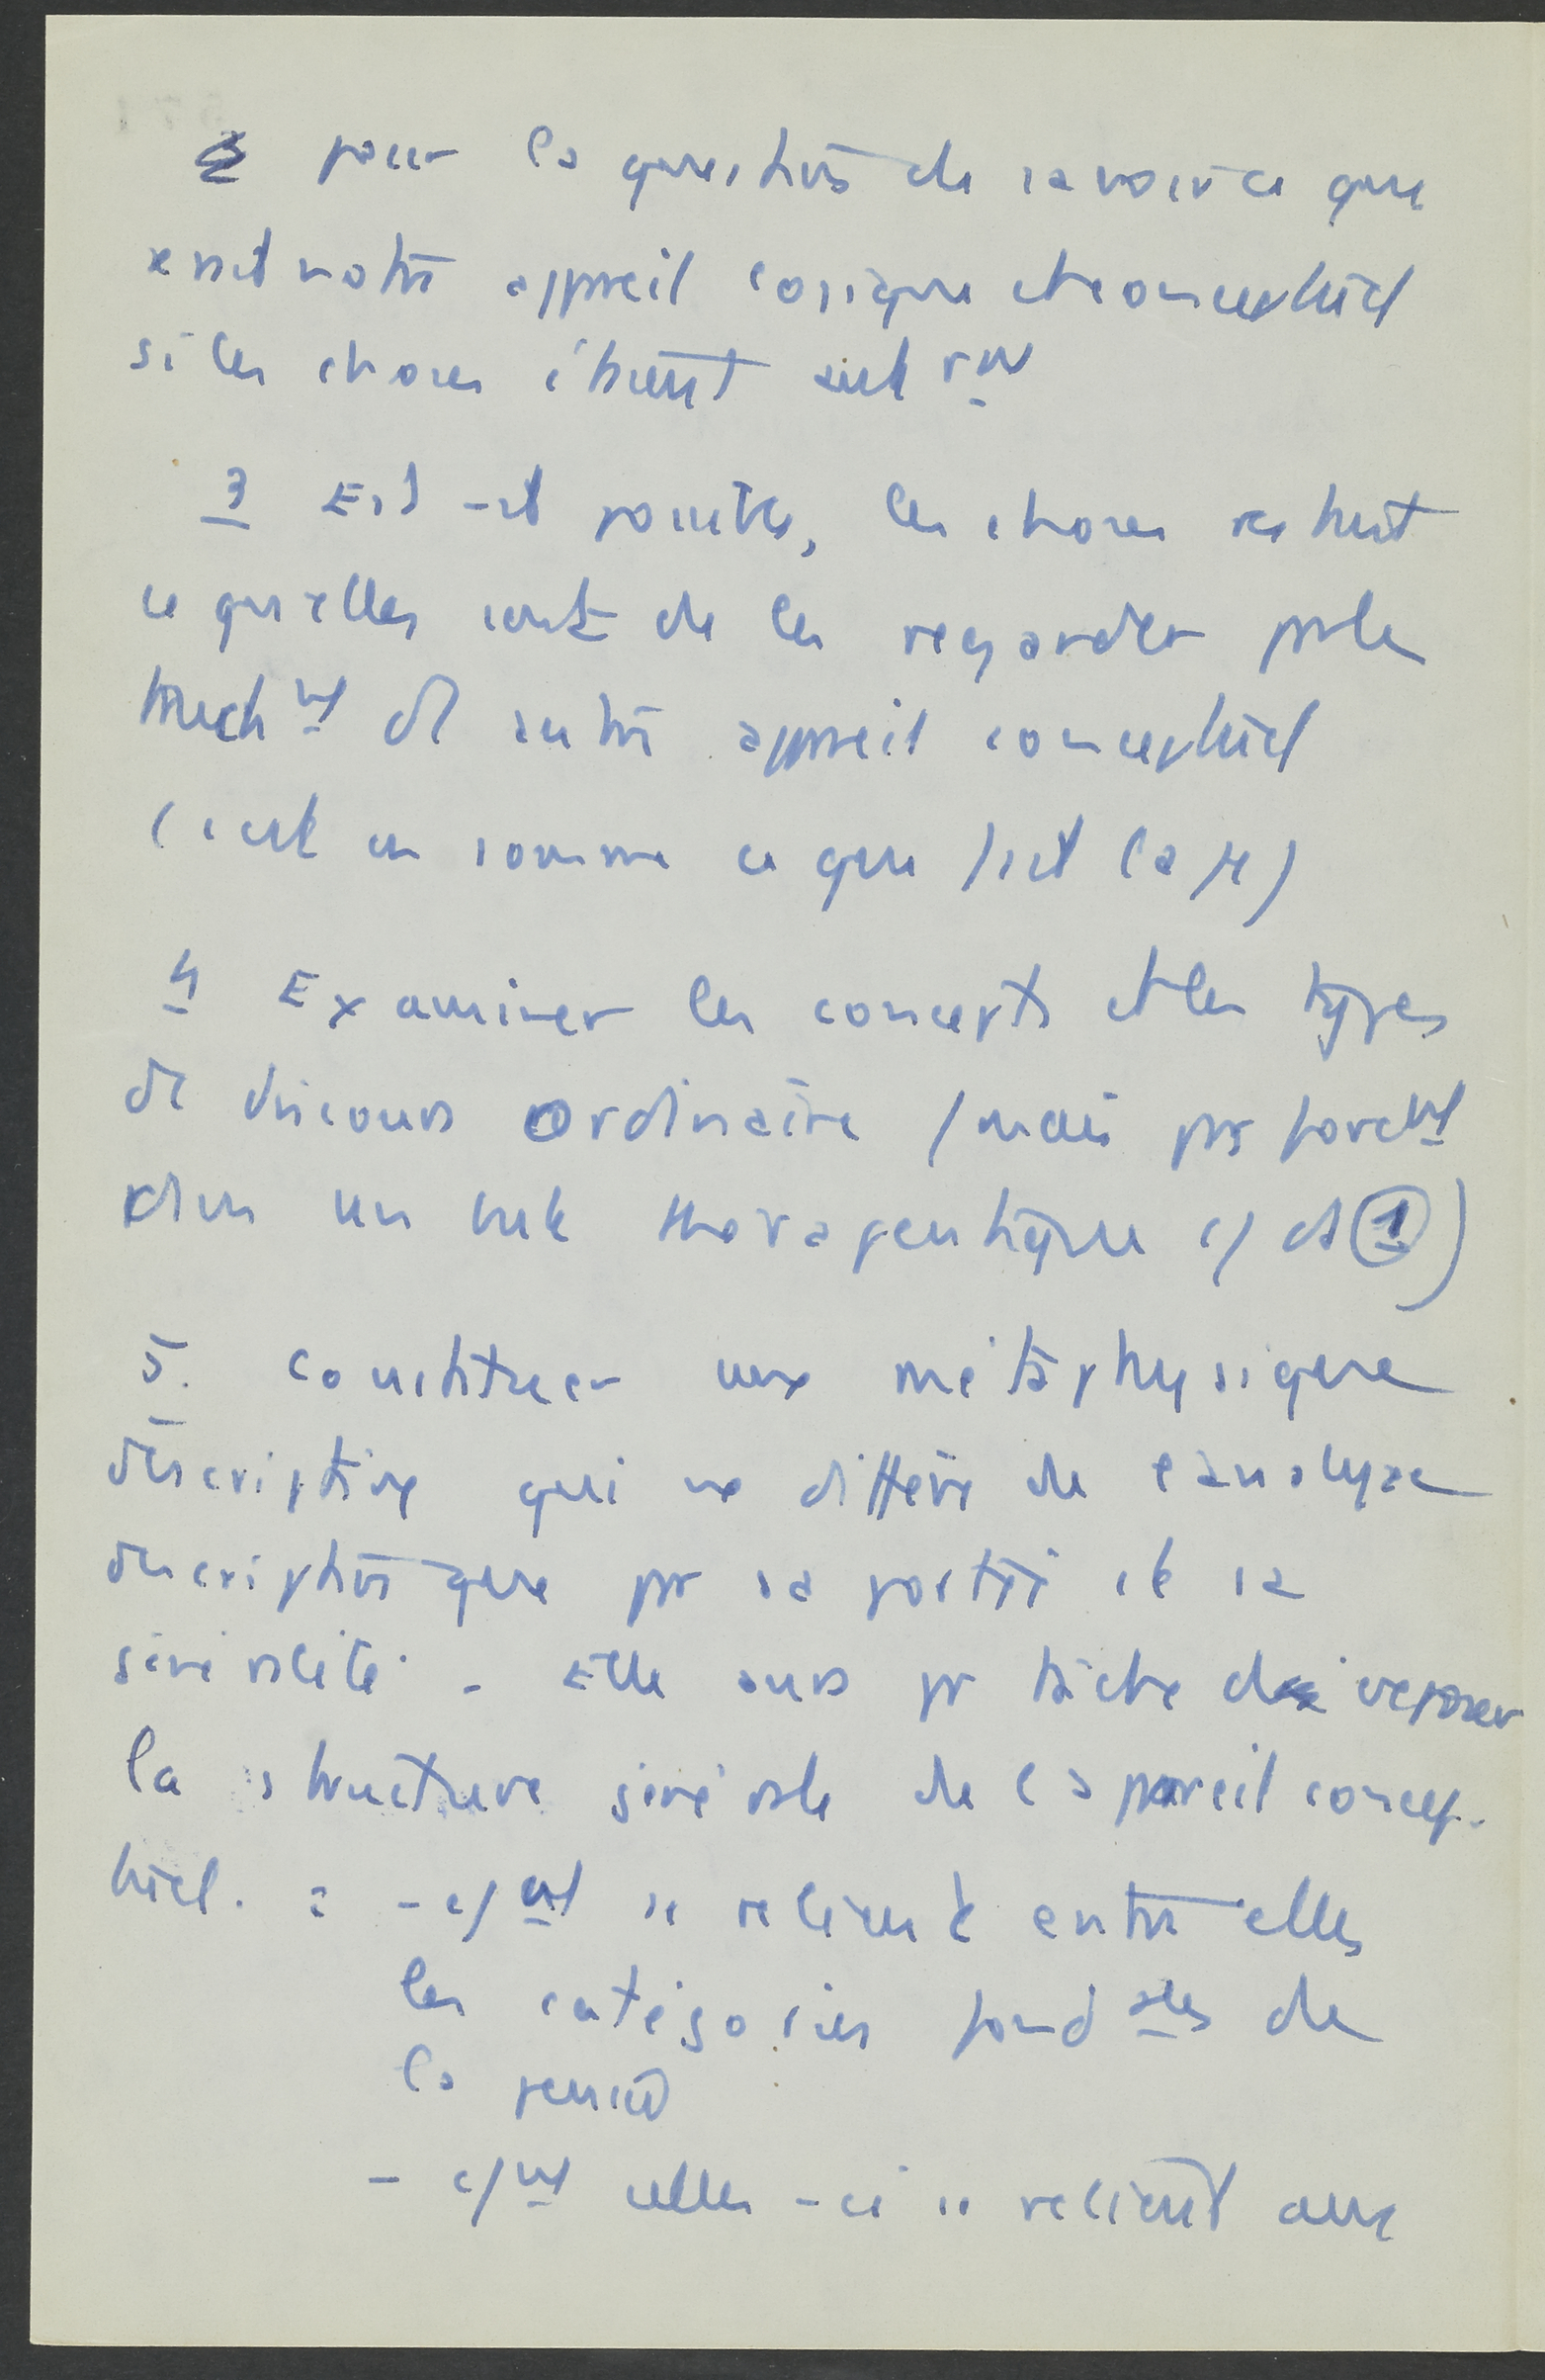 2 poser la question de savoir ce que
serait notre appareil logique et conceptuel
si les choses étaient autrement
3 Est-il possible, les choses restant
ce qu'elles sont de les regarder par le
truchmt d'1 autre appareil conceptuel
(c'est en somme ce que fait la φ)
4 Examiner les concepts et les types
de discours ordinaire (mais pas forcemt
dans un but thérapeutique cf A 1)
5. Constituer une métaphysique
descriptive qui ne diffère de l'analyse
description que par sa portée et sa
généralité. - Elle aura pr tâche de reposer
la structure générale de l'appareil concep-
tuel. : - cmt se relient entre elles
les catégories fondales de
la pensée
- cmt celles-ci se relient aux